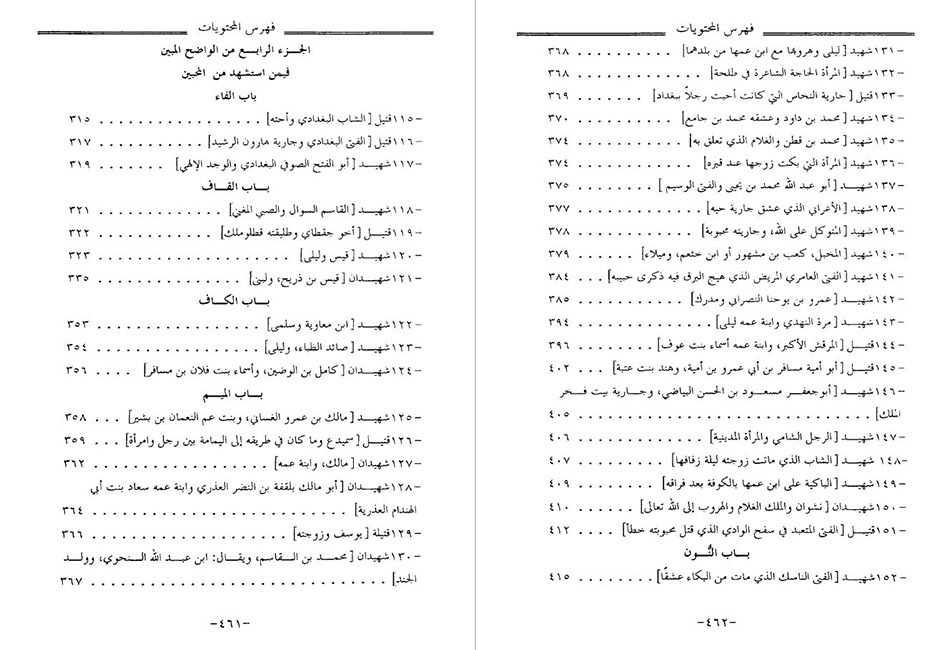 فهرس المحتويات
الجزء الرابع من الواضح المبين
فيمن استشهد من المحبين
باب الفاء
١١٥- قتيل [الشاب البغدادي وأخته] . . . . . . . . . . . . . . . . ٣١٥
١١٦- قتيل [الفتى البغدادي وجارية هارون الرشيد] . . . . . . . . . . ٣١٧
١١٧- شهيد [أبو الفتح الصوفي البغدادي والوجد الإلهي] . . . . . . . ٣١٩
باب القاف
١١٨- شهيد [القاسم السوال والصبي المغني] . . . . . . . . . . . . . ٣٢١
١١٩- قتيل [أخو جقطاي وطليقته قطلوملك] . . . . . . . . . . . . ٣٢٢
١٢٠- شهيد [قيس وليلى] . . . . . . . . . . . . . . . . . . . ٣٢٣
١٢١- شهيدان [قيس بن ذريح، ولبنى] . . . . . . . . . . . . . . ٣٣٥
باب الكاف
١٢٢- شهيد [ابن معاوية وسلمى] . . . . . . . . . . . . . . . . ٣٥٣
١٢٣- شهيد [صائد الظباء، وليلى] . . . . . . . . . . . . . . . . ٣٥٤
١٢٤- شهيدان [كامل بن الوضين، وأسماء بنت فلان بن مسافر] . . . . ٣٥٦
باب الميم
١٢٥- شهيد [مالك بن عمرو الغساني، وبنت عم النعمان بن بشير] . . . . ٣٥٨
١٢٦- قتيل [سميدع وما كان في طريقه إلى اليمامة بين رجل وامرأة] . . . ٣٥٩
١٢٧- شهيدان [مالك، وابنة عمه] . . . . . . . . . . . . . . . . ٣٦٢
١٢٨- شهيدان [أبو مالك بلقفة بن النضر العذري وابنة عمه سعاد بنت أبي
الهندام العذرية] . . . . . . . . . . . . . . . . . . . . . . . . ٣٦٤
١٢٩- قتيلة [يوسف وزوجته] . . . . . . . . . . . . . . . . . . ٣٦٦
١٣٠- شهيدان [محمد بن القاسم، ويقال: ابن عبد الله النحوي، وولد
الجند] . . . . . . . . . . . . . . . . . . . . . . . . . . . . ٣٦٧
-٤٦١-
فهرس المحتويات
١٣١- شهيد [ليلى وهروبها مع ابن عمها من بلدهما] . . . . . . . . . . ٣٦٨
١٣٢- شهيد [المرأة الحاجة الشاعرة في طلحة] . . . . . . . . . . . . ٣٦٨
١٣٣- قتيل [جارية النخاس التي كانت أحبت رجلاً ببغداد] . . . . . . . ٣٦٩
١٣٤- شهيد [محمد بن داود وعشقه محمد بن جامع] . . . . . . . . . . ٣٧٠
١٣٥- شهيد [محمد بن قطن والغلام الذي تعلق به] . . . . . . . . . . ٣٧٤
١٣٦- شهيد [المرأة التي بكت زوجها عند قبره] . . . . . . . . . . . ٣٧٤
١٣٧- شهيد [أبو عبد الله محمد بن يحيى والفتى الوسيم] . . . . . . . . ٣٧٥
١٣٨- شهيد [الأعرابي الذي عشق جارية حيه] . . . . . . . . . . . ٣٧٧
١٣٩- شهيد [المتوكل على الله، وجاريته محبوبة] . . . . . . . . . . . ٣٧٨
١٤٠- شهيد [المخبل، كعب بن مشهور أو ابن خثعم، وميلاء] . . . . . . ٣٧٩
١٤١- شهيد [الفتى العامري المريض الذي هيج البرق فيه ذكرى حبيبه] . . . ٣٨٤
١٤٢- شهيد [عمرو بن يوحنا النصراني ومدرك] . . . . . . . . . . . ٣٨٥
١٤٣- شهيد [مرة النهدي وابنة عمه ليلى] . . . . . . . . . . . . . ٣٩٤
١٤٤- قتيل [المرقش الأكبر، وابنة عمه أسماء بنت عوف] . . . . . . . . ٣٩٦
١٤٥- قتيل [أبو أمية مسافر بن أبي عمرو بن أمية، وهند بنت عتبة] . . . . ٤٠٢
١٤٦- شهيد [أبو جعفر مسعود بن الحسن البياضي، وجارية بيت فخر
الملك] . . . . . . . . . . . . . . . . . . . . . . . . . . . . ٤٠٥
١٤٧- شهيد [الرجل الشامي والمرأة المدينية] . . . . . . . . . . . . . ٤٠٦
١٤٨- شهيد [الشاب الذي ماتت زوجته ليلة زفافها] . . . . . . . . . ٤٠٧
١٤٩- شهيد [الباكية على ابن عمها بالكوفة بعد فراقه] . . . . . . . . . ٤٠٩
١٥٠- شهيدان [نشوان والملك الغلام والهروب إلى الله تعالى] . . . . . . ٤١٠
١٥١- قتيل [الفتى المتعبد في سفح الوادي الذي قتل محبوبته خطأ] . . . . ٤١٢
باب النُّون
١٥٢- شهيد [الفتى الناسك الذي مات من البكاء عشقًا] . . . . . . . . ٤١٥
-٤٦٢-